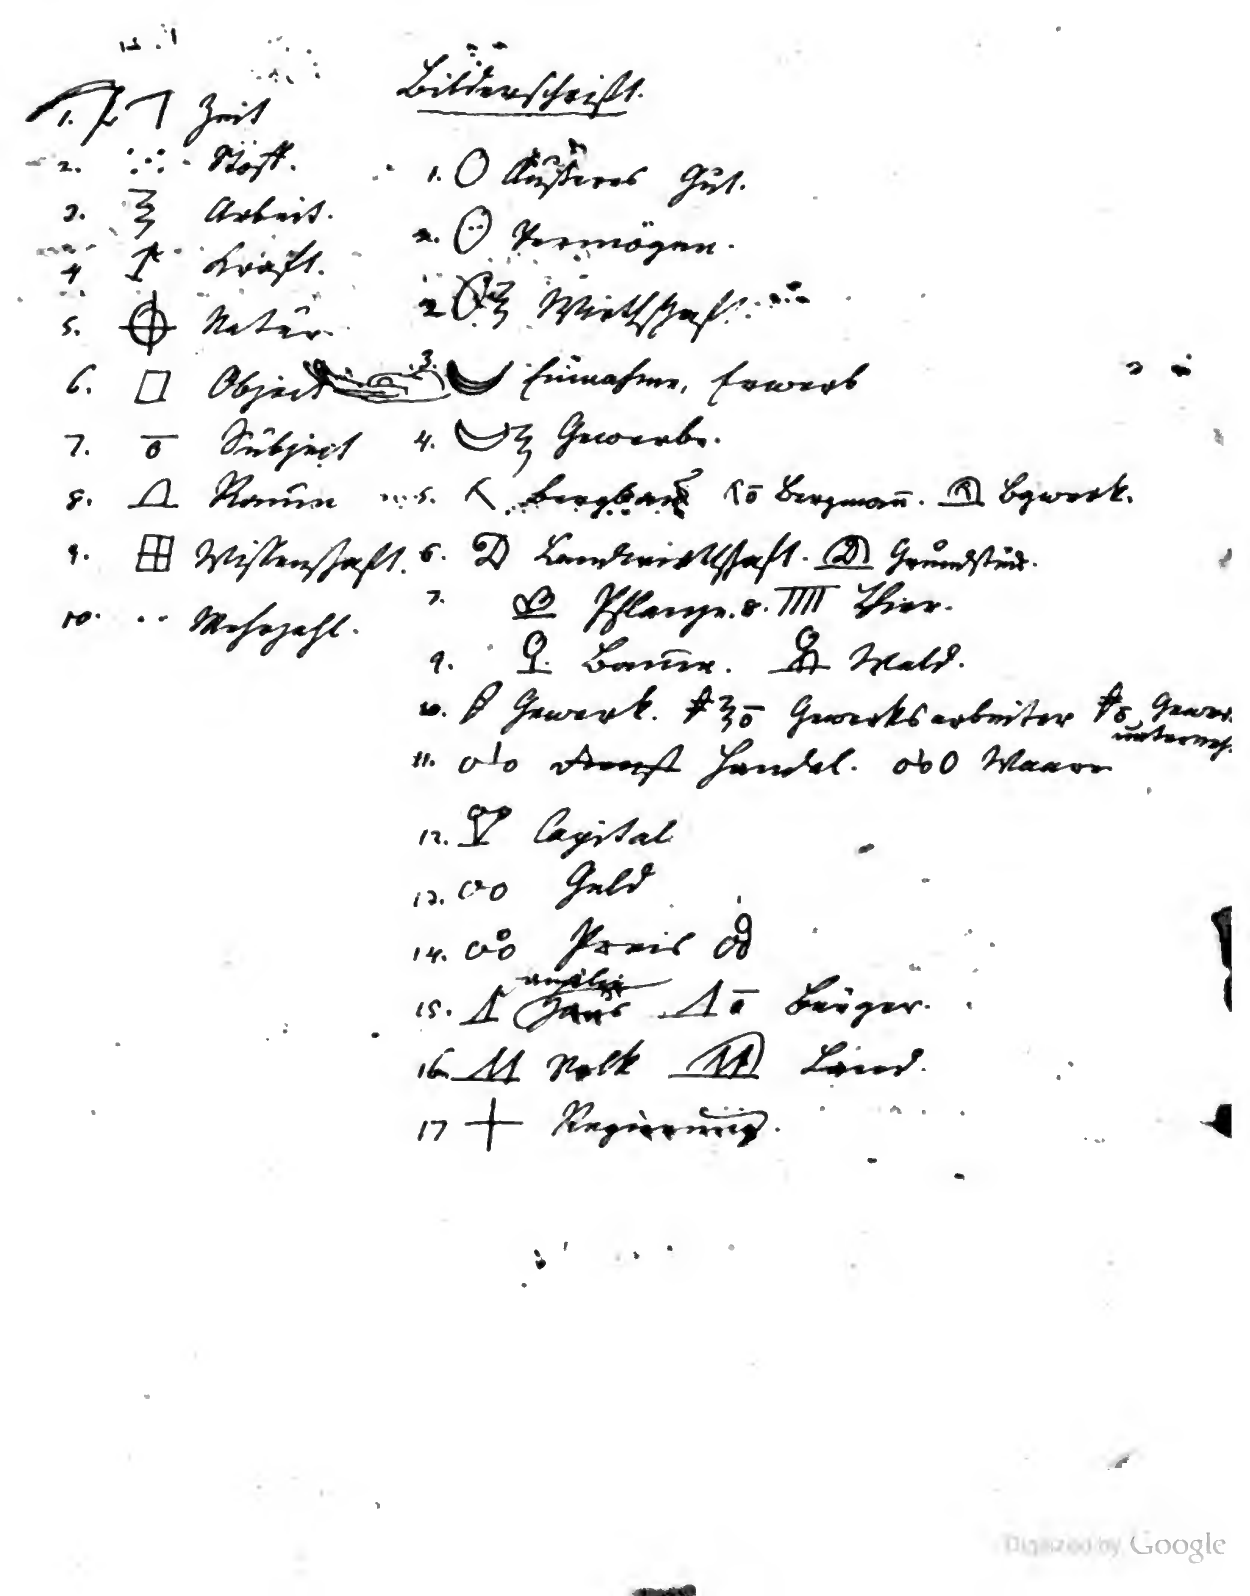 Bilderschrift.
1. Zeit
2. Stoff.
3. Arbeit.
4 Kraft.
5. Natur.
6. Object
7. Subject
8. Raum
9. Wissenschaft.
10. Mehrzahl.
1. Äußeres Gut.
2. Vermögen.
2 Wirthschaft.
3. Einnahme, Erwerb
4. Gewerbe.
5. Bergbau Bergmann. Bgwerk.
6. Landwirthschaft. Grundstück.
7. Pflanze. 8. Thier.
9. Baum. Wald.
10. Gewerk. Gewerksarbeiter Gewer
unterneh.
11. Handel. Waare
12. Capital
13. Geld
14. Preis
15. Haus Bürger.
16. Volk Land.
17 Regierung.
Digitized by Google